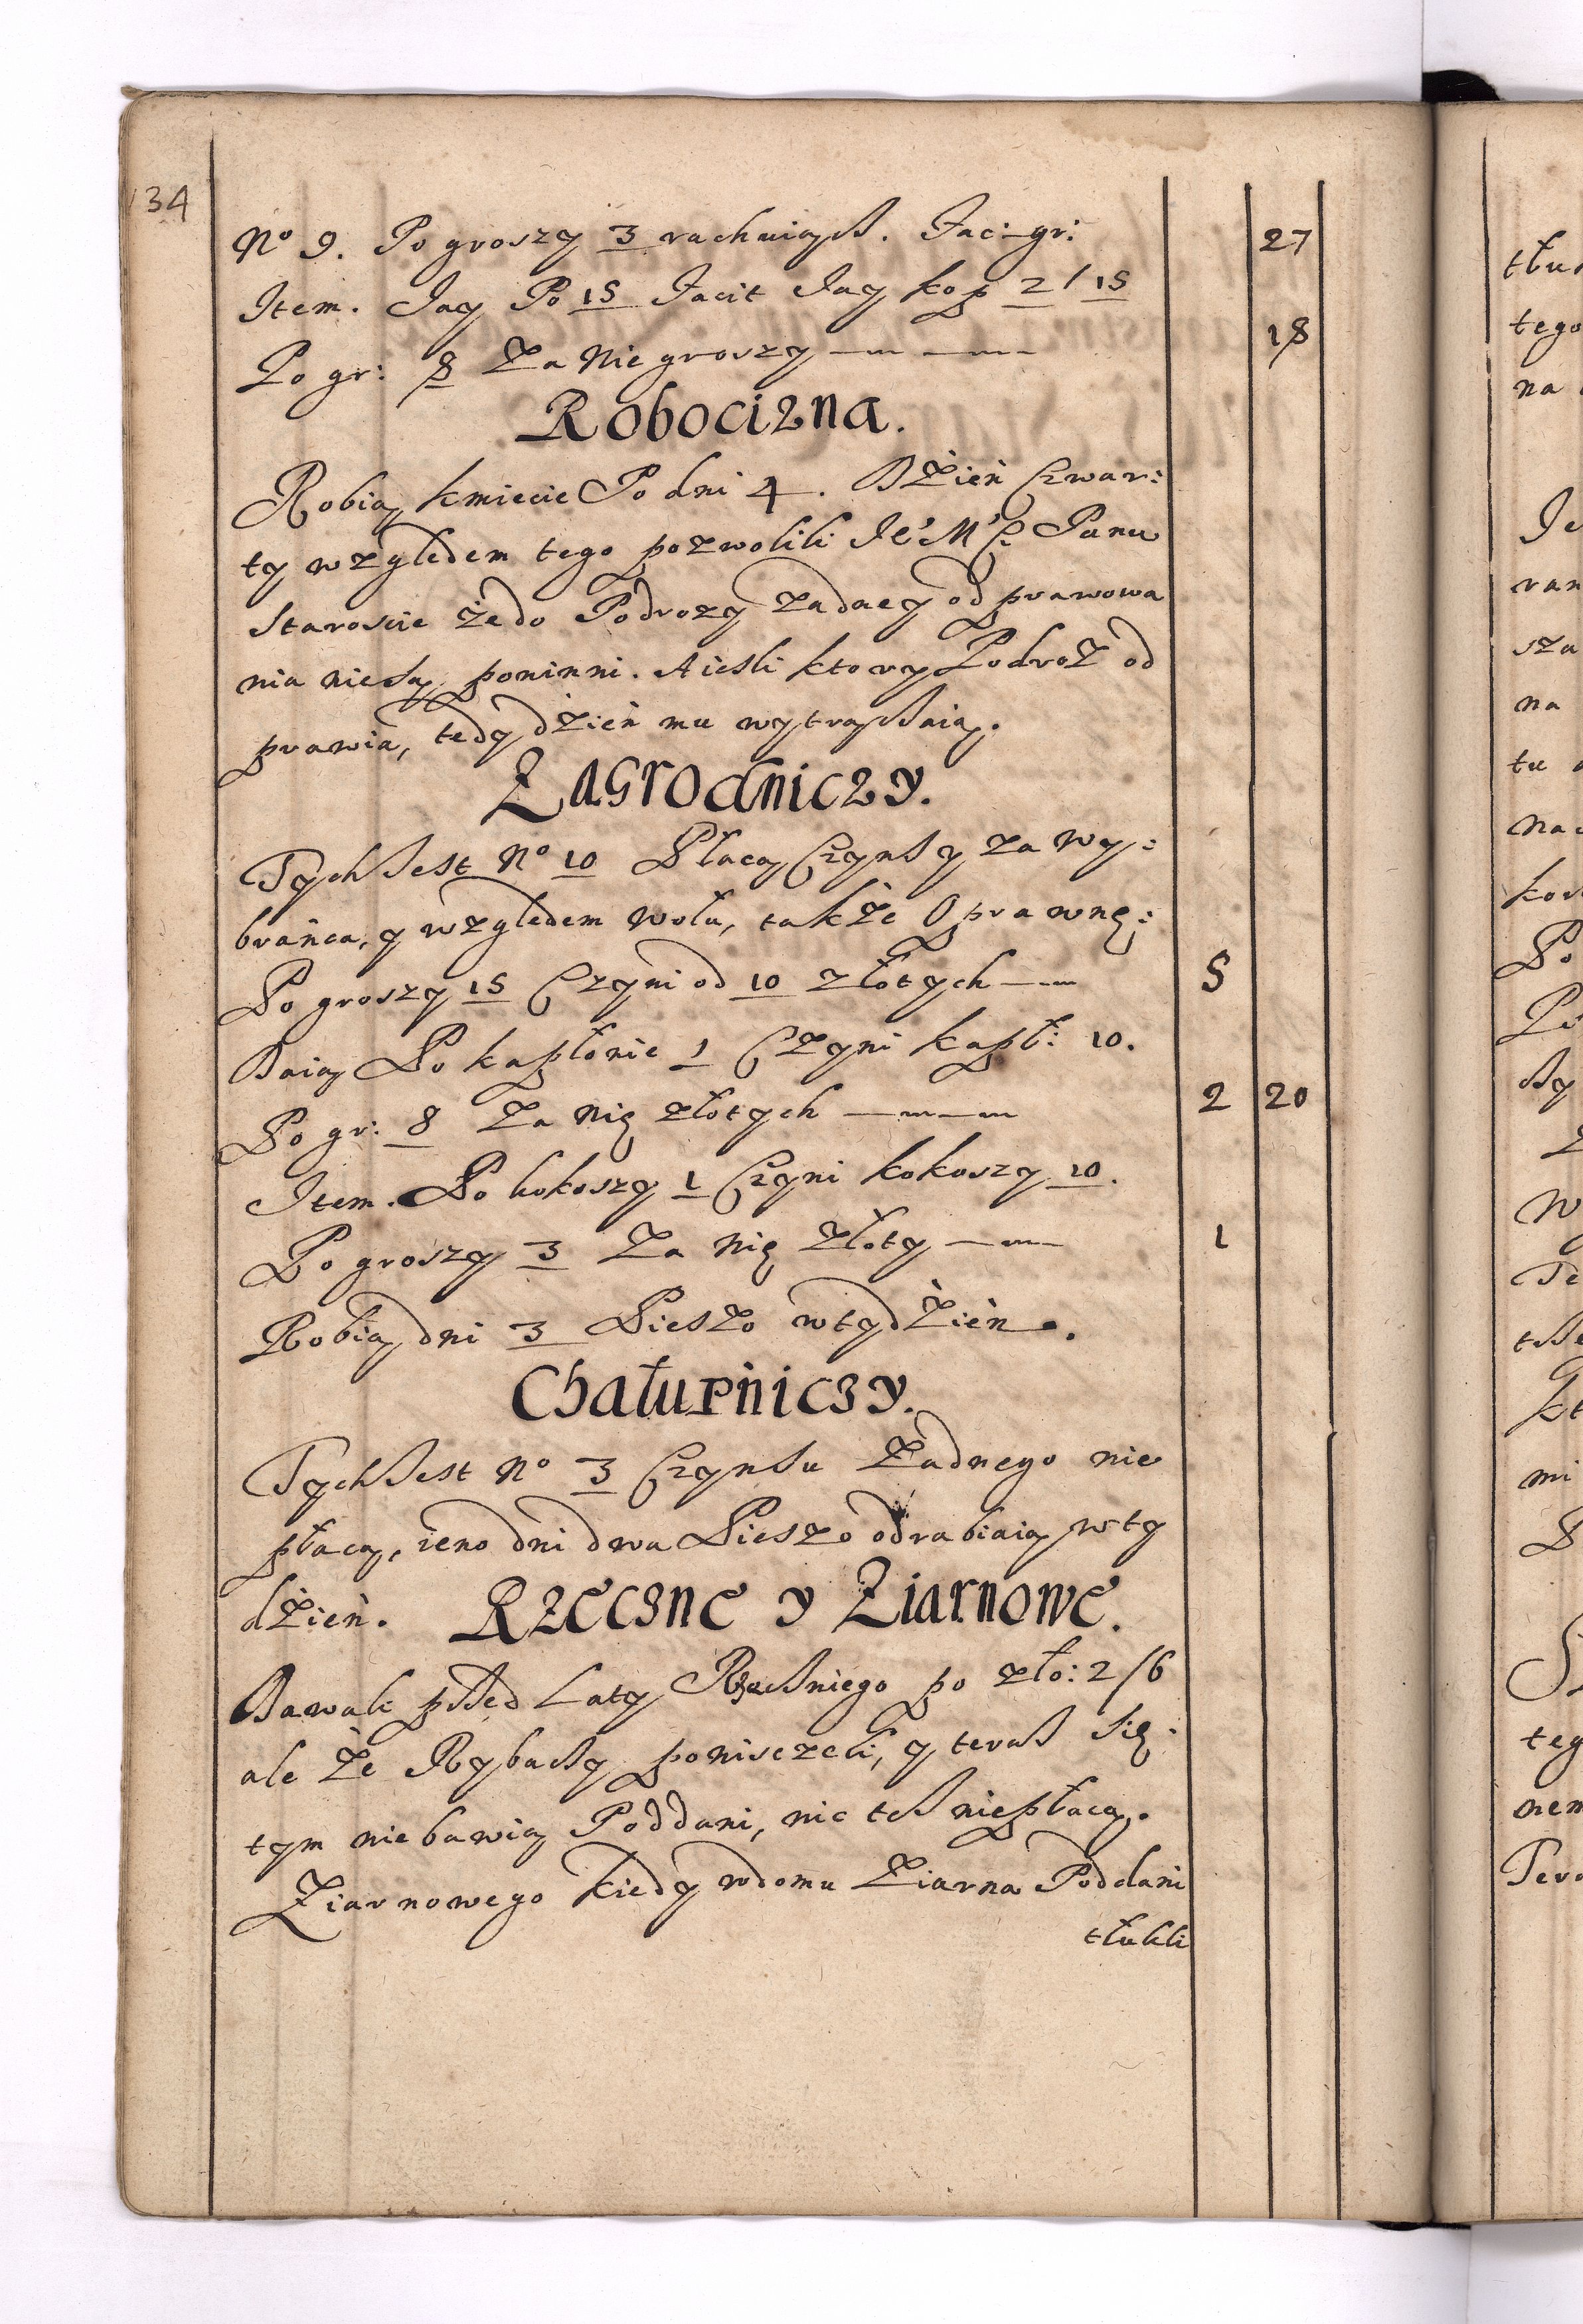 134
No 9. Po groszy 3 rachuiąsz. Faci gr: 27
Item. Jay Po 15 Facit Jay kop 2 / 15
Po gr: 8 Za Nie groszy 18
Robocizna.
Robią kmiecie Po dni 4. Dżień Czwar:
ty względem tego pozwolili Je'M'P: Panu
Staroscie że do Podrozy żadney odprawowa
nia niesą powinni. A iesli ktory Podroż od
prawia, tedy dżień mu wytrąszaią.
Zagrodniczy.
Tych Jest No 10 Płacą Czynszy za wy:
brańca, y względem wołu, także Oprawnę:
Po groszy 15 Czyni od 10 złotych 5
Daią Po kapłonie 1 Czyni kapł: 10.
Po gr: 8 Za Nię złotych 2 20
Item. Po kokoszy 1 Czyni kokoszy 10.
Po groszy 3 Za Nię złoty 1
Robią dni 3 Pieszo w tydżień.
Chałupniczy.
Tych Jest No 3 Czynszu Żadnego nie
płacą, ieno dni dwa Pieszo odrabiaią w ty
dżień. Rzeczne y Ziarnowe.
Dawali przed Laty Rzeszniego po zło: 2 / 6
ale że Rybaszy poniszczeli, y terasz się
tym nie bawią Poddani, nic tesz niepłacą.
Ziarnowego kiedy w domu Ziarna Poddani
tłukli